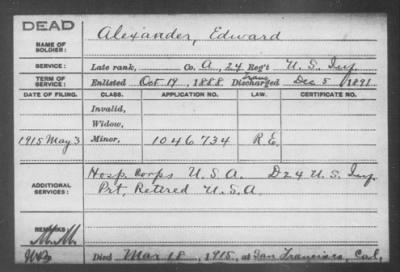 DEAD
NAME OF SOLDIER: Alexander, Edward
SERVICE: Late rank, Co. A, 24 Reg't U. S. Inf.
TERM OF SERVICE: Enlisted Oct 19, 1888 Trans Discharged Dec 5, 1891
DATE OF FILING. CLASS. APPLICATION NO. LAW. CERTIFICATE NO.
Invalid,
Widow,
1915 May 3 Minor, 1046734 R.E.
ADDITIONAL SERVICES: Hosp. Corps U.S.A. D 24 U.S. Inf.
Pvt. Retired U.S.A.
REMARKS:
Died Mar 18, 1915, at San Francisco, Cal,